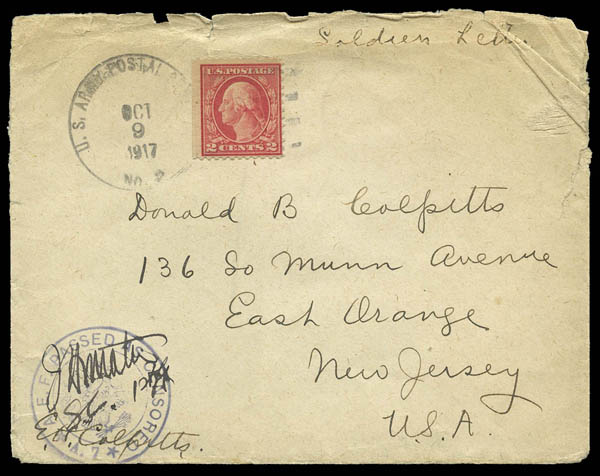 Soldiers
U. S. ARMY POSTAL
OCT
9
1917
No. 2
U.S. POSTAGE
2 CENTS 2
Donald B Colpitts
136 So Munn Avenue
East Orange
New Jersey
U.S.A.
A.E.F. PASSED CENSOR
A. 7
E. Colpitts.